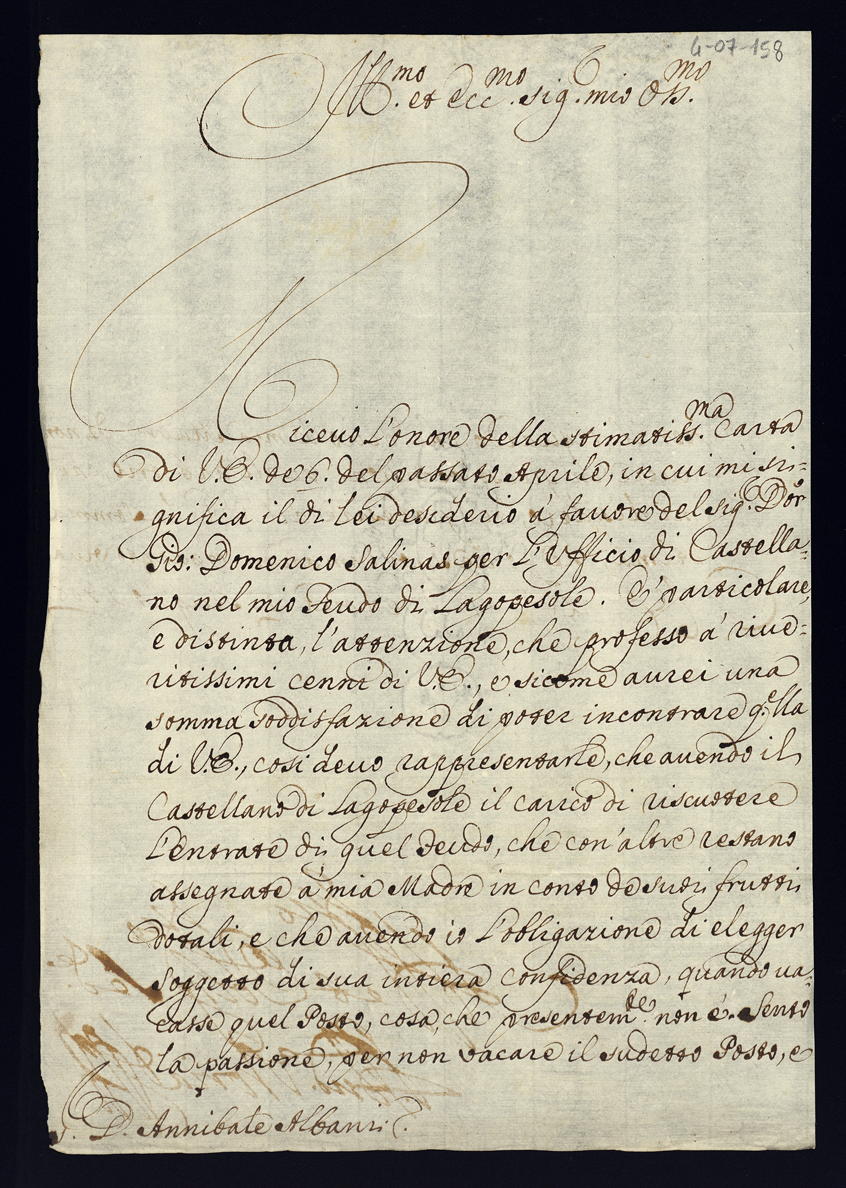 4-07-158
Ill.mo et Ecc.mo Sig.e mio Oss.mo
Ricevo L'onore della stimatiss.ma Carta
di V.E. de 6. del passato Aprile, in cui mi si=
gnifica il di lei desiderio à favore del Sig.e Dor
Gio: Domenico Salinas per L'Ufficio di Castella=
no nel mio Feudo di Lagopesole. E' particolare,
e distinta, l'attenzione, che professo à rive=
ritissimi cenni di V.E., e sicome aurei una
somma soddisfazione di poter incontrare q.ella
di V.E., così devo rappresentarle, che avendo il
Castellano di Lagopesole il carico di riscuotere
L'Entrate di quel Feudo, che con'altre restano
assegnate à mia Madre in conto de suoi frutti
dotali, e che avendo io L'obligazione di elegger
soggetto di sua intiera confidenza, quando va=
casse quel Posto, cosa, che presentem.te non è. Sento
la passione, per non vacare il sudetto Posto, e
S. D. Annibale Albani